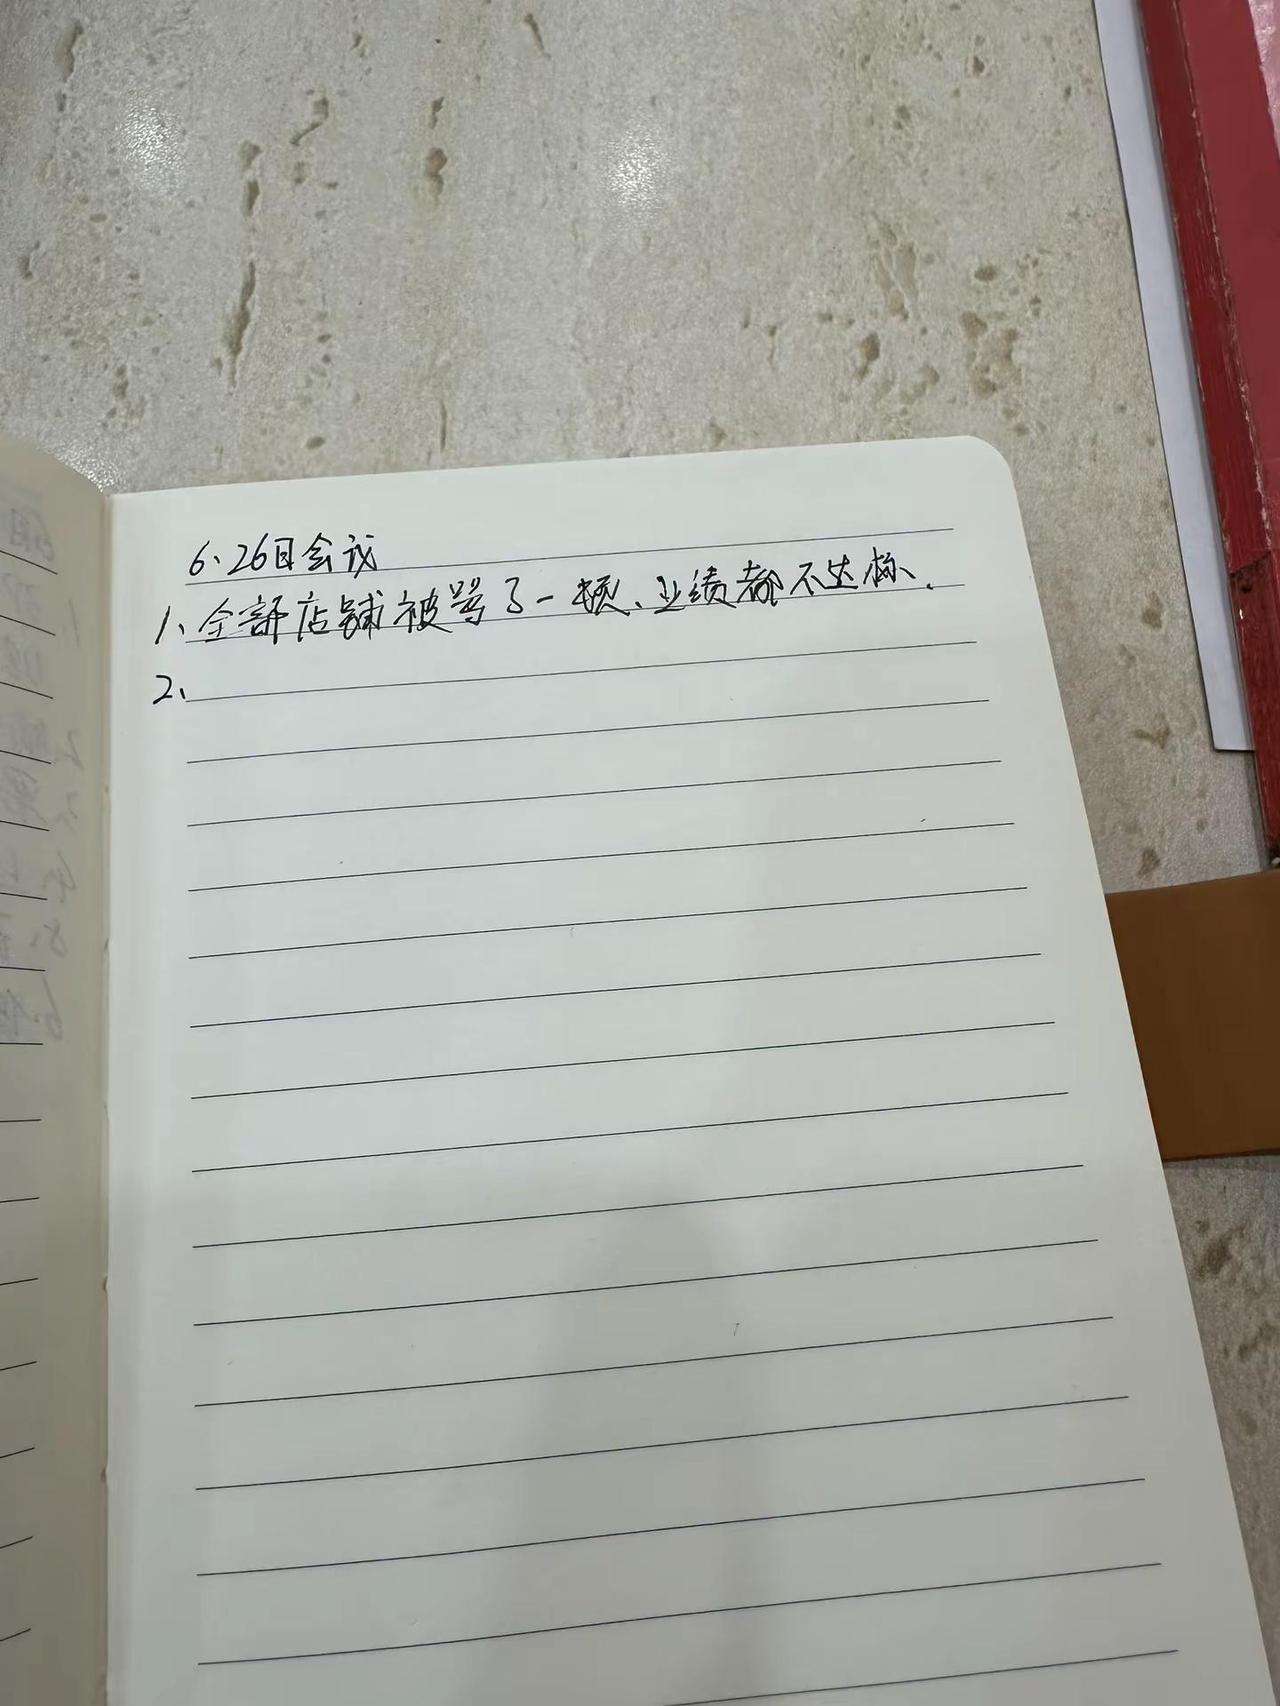 6、26日会议
1、全部店铺被骂了一顿、业绩都不达标.
2、